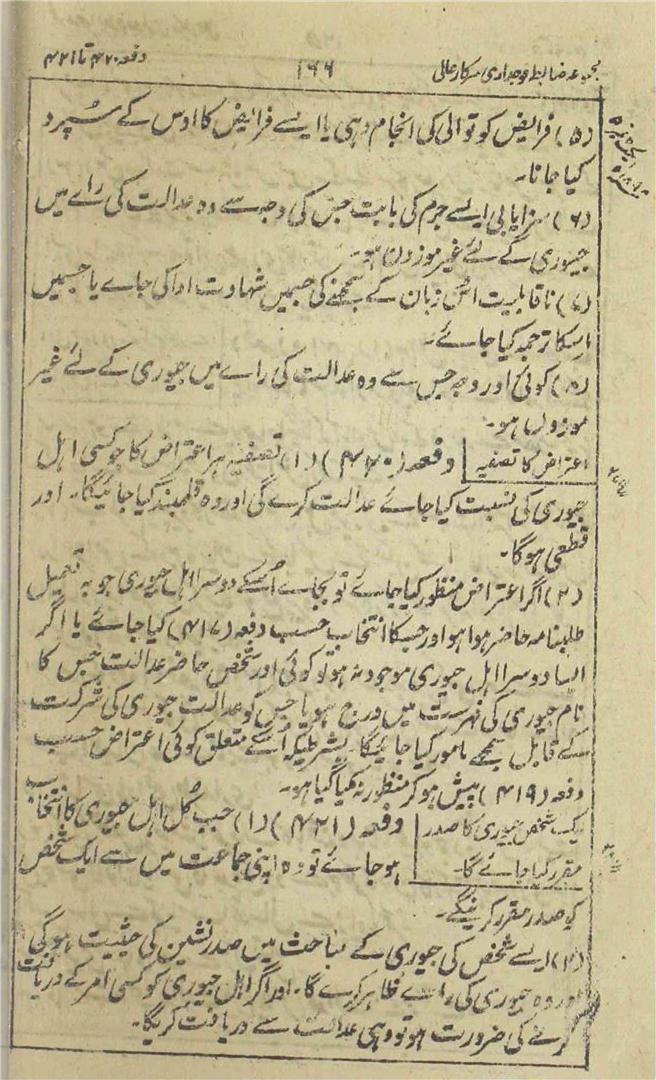 مجموعہ ضابطہ فوجداری سرکار عالی ۱۶۶ دفعہ ۴۲۰ تا ۴۲۱
(۵) فرایض کوتوالی کی انجام دہی یا ایسے فرایض کا اوس کے سپرد
کیا جانا۔
(۶) سزایابی ایسے جرم کی بابت جس کی وجہ سے وہ عدالت کی راے میں
جیوری کے لئے غیر موزون ہو۔
(۷) ناقابلیت اس زبان کے سمجھنے کی جسمیں شہادت ادا کی جاے یا جسمیں
اسکا ترجمہ کیا جائے۔
(۸) کوئی اور وجہ جس سے وہ عدالت کی راے میں جیوری کے لئے غیر
موزوں ہو۔
اعتراض کا تصفیہ دفعہ (۴۲۰) (۱) تصفیہ ہر اعتراض کا جو کسی اہل
جیوری کی نسبت کیا جائے عدالت کرے گی اور وہ قلمبند کیا جائیگا۔ اور
قطعی ہوگا۔
(۲) اگر اعتراض منظور کیا جائے تو بجاے اُسکے دوسرا اہل جیوری جو بہ تعمیل
طلبنامہ حاضر ہوا ہو اور جسکا انتخاب حسب دفعہ (۴۱۷) کیا جائے یا اگر
ایسا دوسرا اہل جیوری موجود نہ ہو تو کوئی اور شخص حاضر عدالت جس کا
نام جیوری کی فہرست میں درج ہو یا جس کو عدالت جیوری کی شرکت
کے قابل سمجھے مامور کیا جائیگا۔ بشرطیکہ اُسکے متعلق کوئی اعتراض حسب
دفعہ (۴۱۹) پیش ہوکر منظور نہ کیا گیا ہو۔
ایک شخص جیوری کا صدر دفعہ (۴۲۱) (۱) جب کُل اہل جیوری کا انتخاب
مقرر کیا جائے گا۔ ہوجائے تو وہ اپنی جماعت میں سے ایک شخص
کو صدر مقرر کرینگے۔
(۲) ایسے شخص کی جیوری کے مباحث میں صدر نشین کی حیثیت ہوگی
اور وہ جیوری کی راے ظاہر کرے گا۔ اور اگر اہل جیوری کو کسی امر کے دریافت
کرنے کی ضرورت ہو تو وہی عدالت سے دریافت کریگا۔